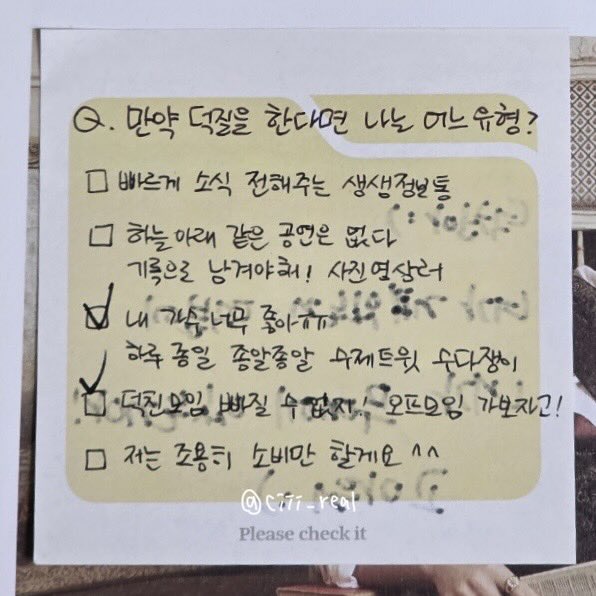 Q. 만약 덕질을 한다면 나는 어느 유형?
빠르게 소식 전해주는 생생정보통
하늘아래 같은 공연은 없다
기록으로 남겨야해! 사진영상러
내 가수 너무 좋아ㅠㅠ
하루 종일 종알종알 수제트윗 수다쟁이
덕친모임 빠질 수 없지.. 오프모임 가보자고!
저는 조용히 소비만 할게요 ^^
@ciii_real
Please check it